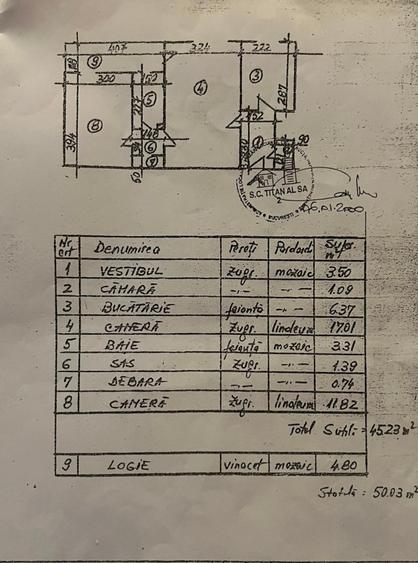 407 224 222
9
300 150
5 4 3 287
394 8 148 152
6 1 90
7
60
S.C. TITAN AL SA
2
06.01.2000
Nr crt Denumirea Pereți Pardos. Supr. m²
1 VESTIBUL zugr. mozaic 3.50
2 CĂMARĂ -..- -..- 1.09
3 BUCĂTĂRIE faianță -..- 6.37
4 CAMERĂ zugr. linoleum 17.01
5 BAIE faianță mozaic 3.31
6 SAS zugr. -..- 1.39
7 DEBARA -..- -..- 0.74
8 CAMERĂ zugr. linoleum 11.82
Total Sutilă = 45.23 m²
9 LOGIE vinacet mozaic 4.80
Stotală : 50.03 m²